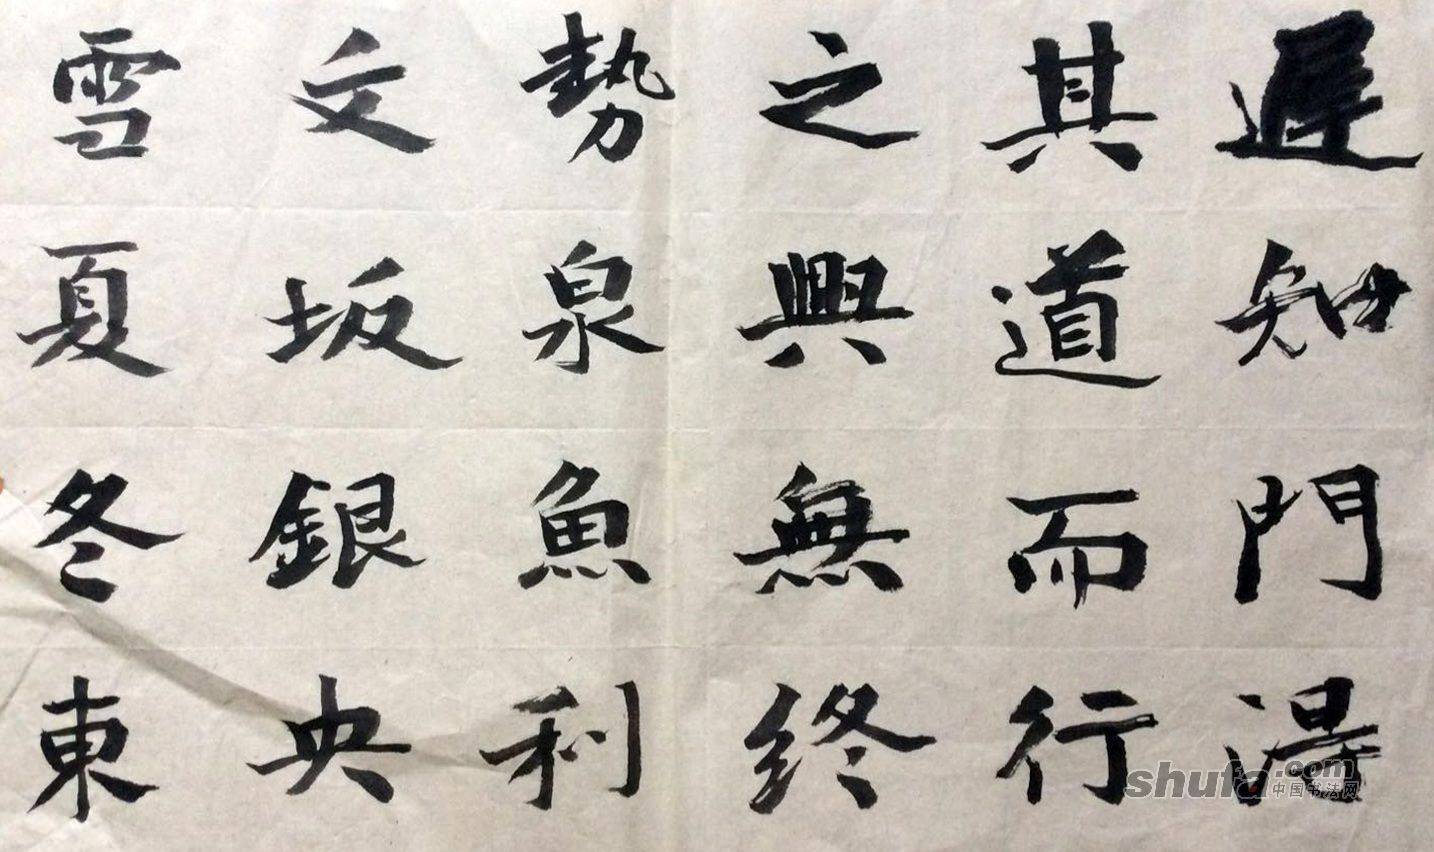 遲知門
其道而行
之興無終
勢泉魚利
文坂銀央
雪夏冬東
shufa.com
中国书法网